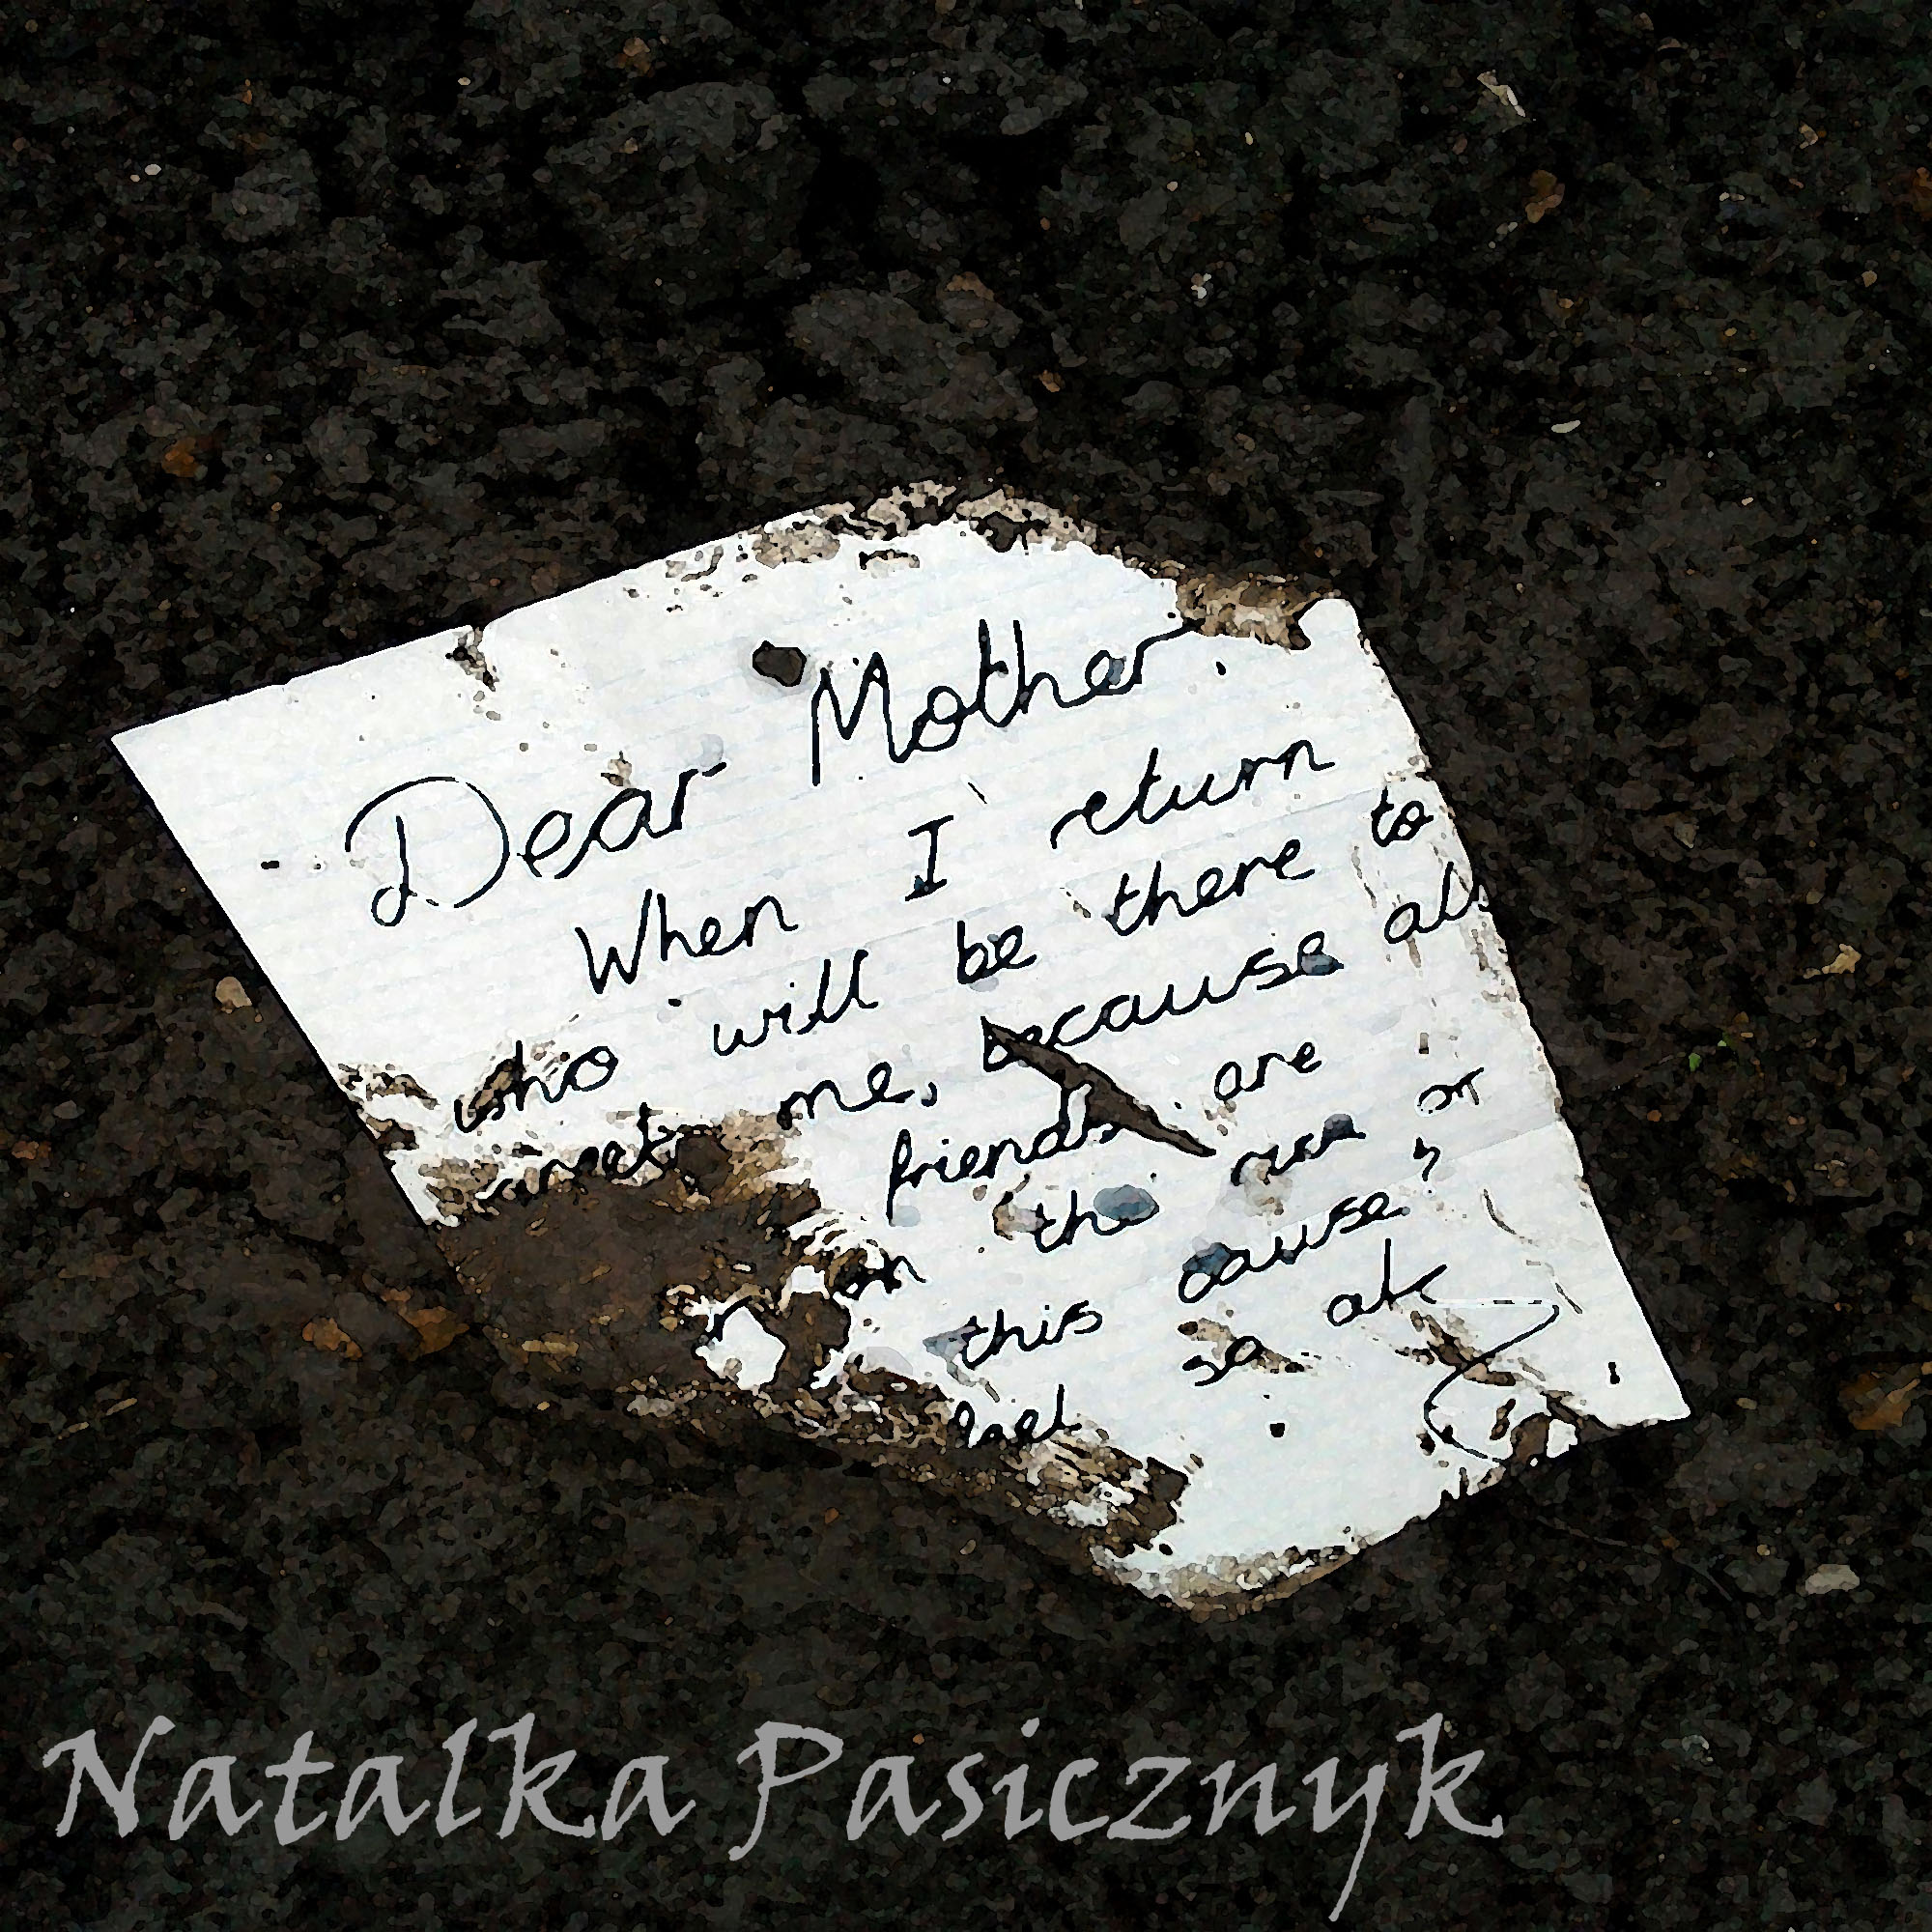 Dear Mother.
When I return
who will be there to
meet me, because all
friends are
on the or
this cause,
feel so
Natalka Pasicznyk